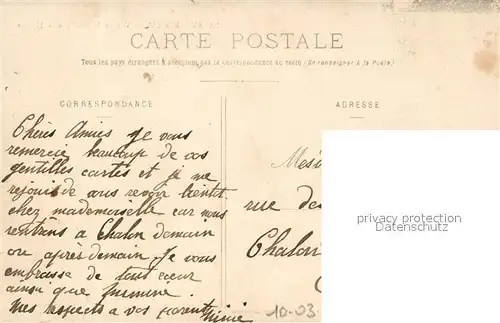 CARTE POSTALE
Tous les pays étrangers n'acceptent pas la correspondance au recto (Se renseigner à la Poste)
CORRESPONDANCE
Chères Amies Je vous
remercie beaucoup de vos
gentilles cartes et je me
rejouis de vous revoir bientot
chez mademoiselle car nous
rentrons a Chalon demain
ou après demain. Je vous
embrasse de tout cœur
ainsi que
Mes respects a vos parents
Mimie
ADRESSE
rue de
Chalon
privacy protection
Datenschutz
10-03